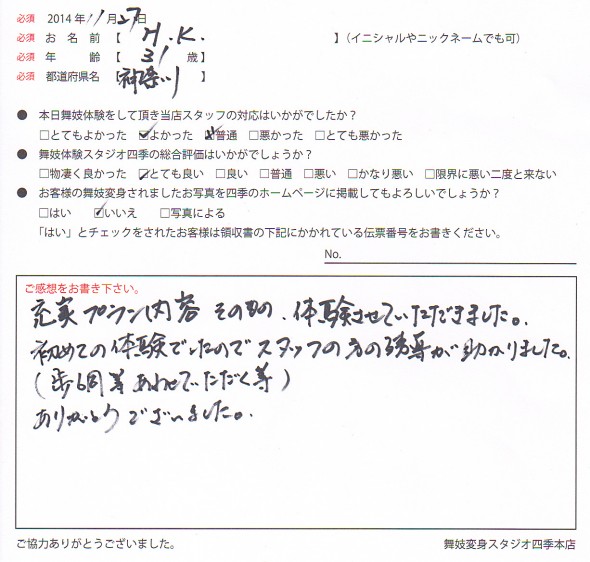 必須 2014年 11月27日
必須 お名前 【 H.K. 】(イニシャルやニックネームでも可)
必須 年齢 【 31 歳】
必須 都道府県名 【神奈川】
● 本日舞妓体験をして頂き当店スタッフの対応はいかがでしたか?
□とてもよかった ☑よかった ☑普通 □悪かった □とても悪かった
● 舞妓体験スタジオ四季の総合評価はいかがでしょうか?
□物凄く良かった ☑とても良い □良い □普通 □悪い □かなり悪い □限界に悪い二度と来ない
● お客様の舞妓変身されましたお写真を四季のホームページに掲載してもよろしいでしょうか?
□はい ☑いいえ □写真による
「はい」とチェックをされたお客様は領収書の下記にかかれている伝票番号をお書きください。
No.
ご感想をお書き下さい。
充実プラン内容そのもの、体験させていただきました。
初めての体験でしたのでスタッフの方の誘導が助かりました。
(歩く同等あわせていただく等)
ありがとうございました。
ご協力ありがとうございました。 舞妓変身スタジオ四季本店